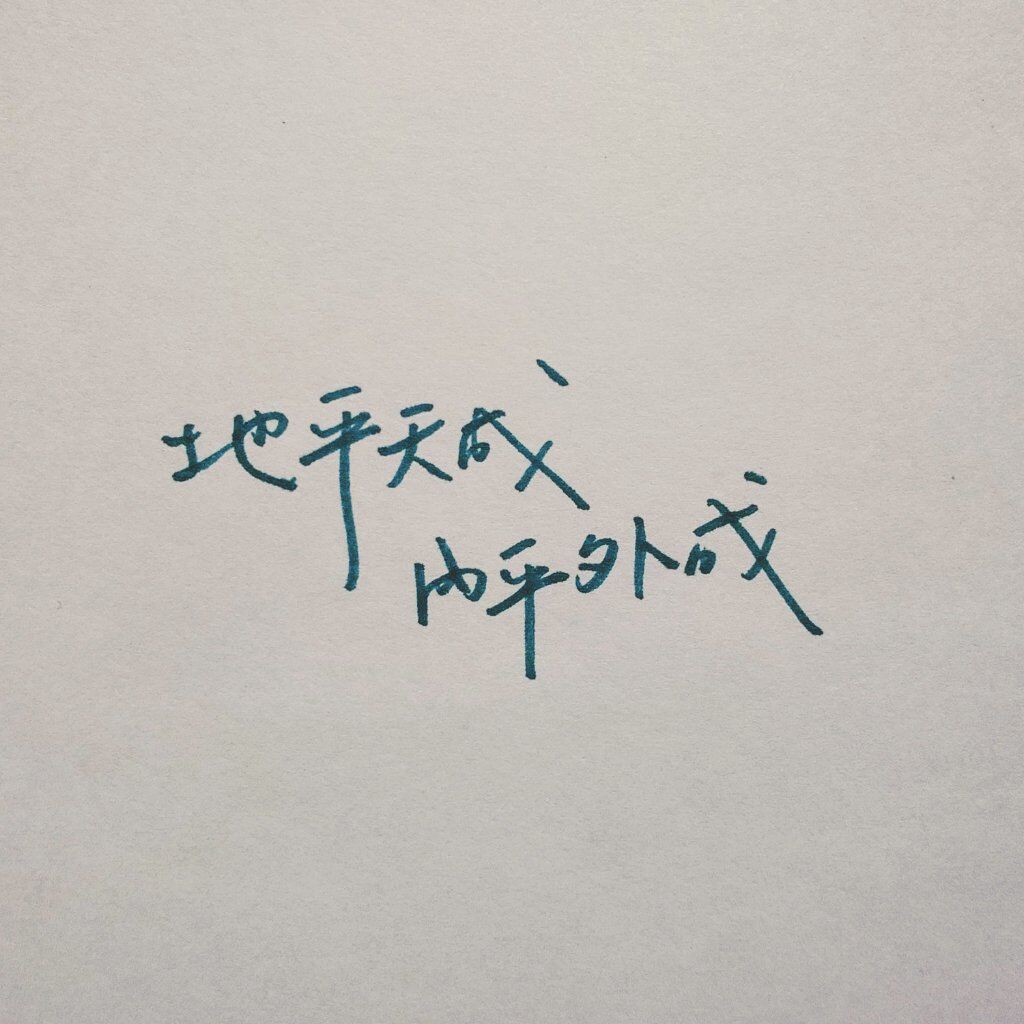 地平天成
内平外成